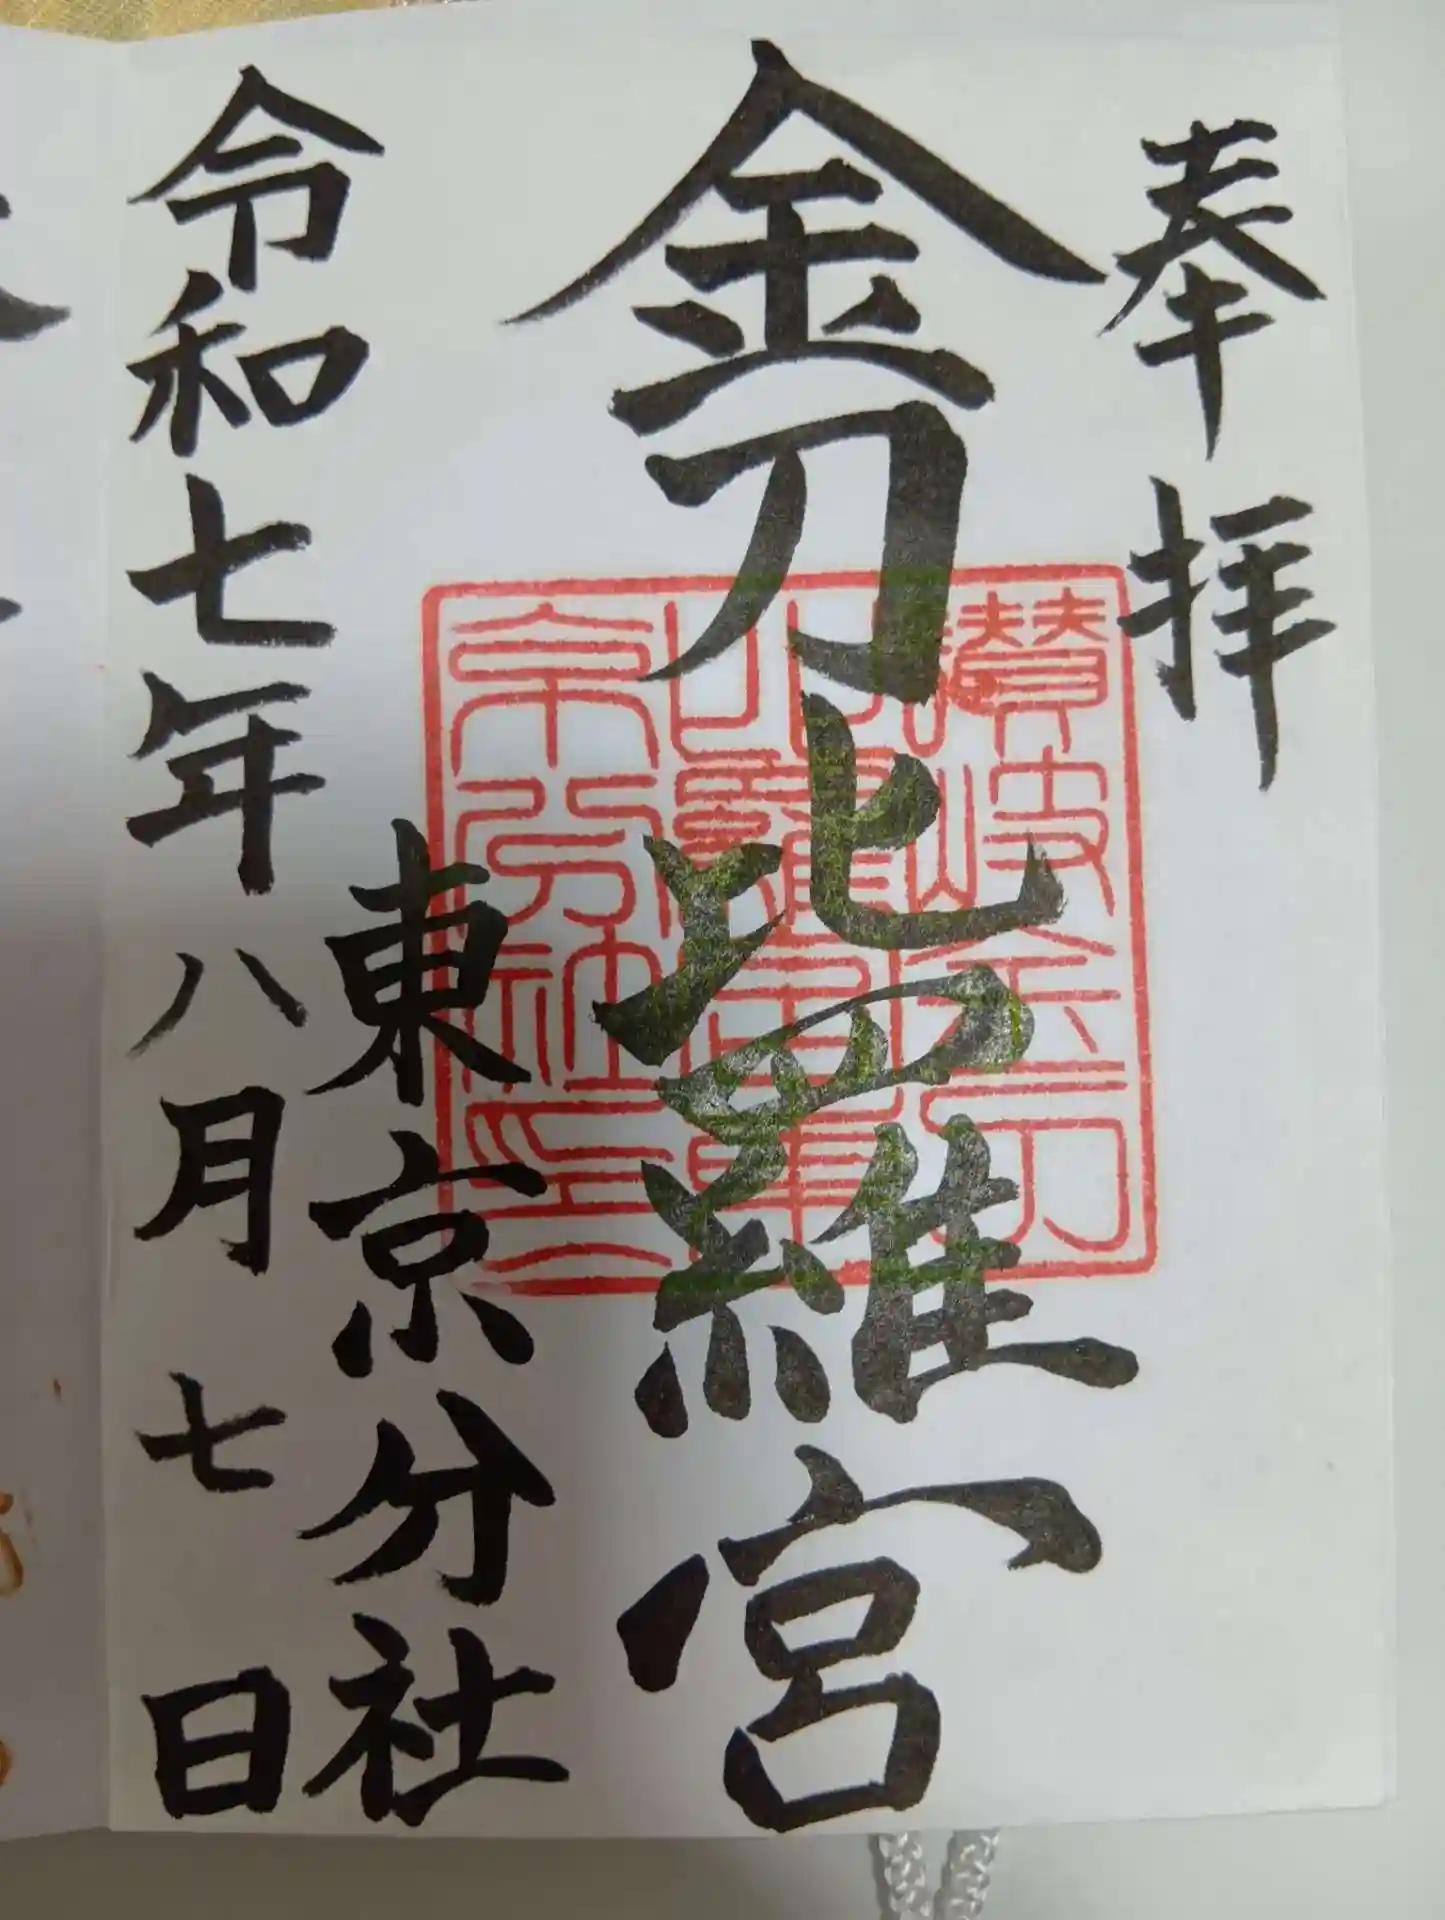 奉拝
金刀比羅宮
讃岐金刀
比羅宮東
京分社印
東京分社
令和七年八月七日